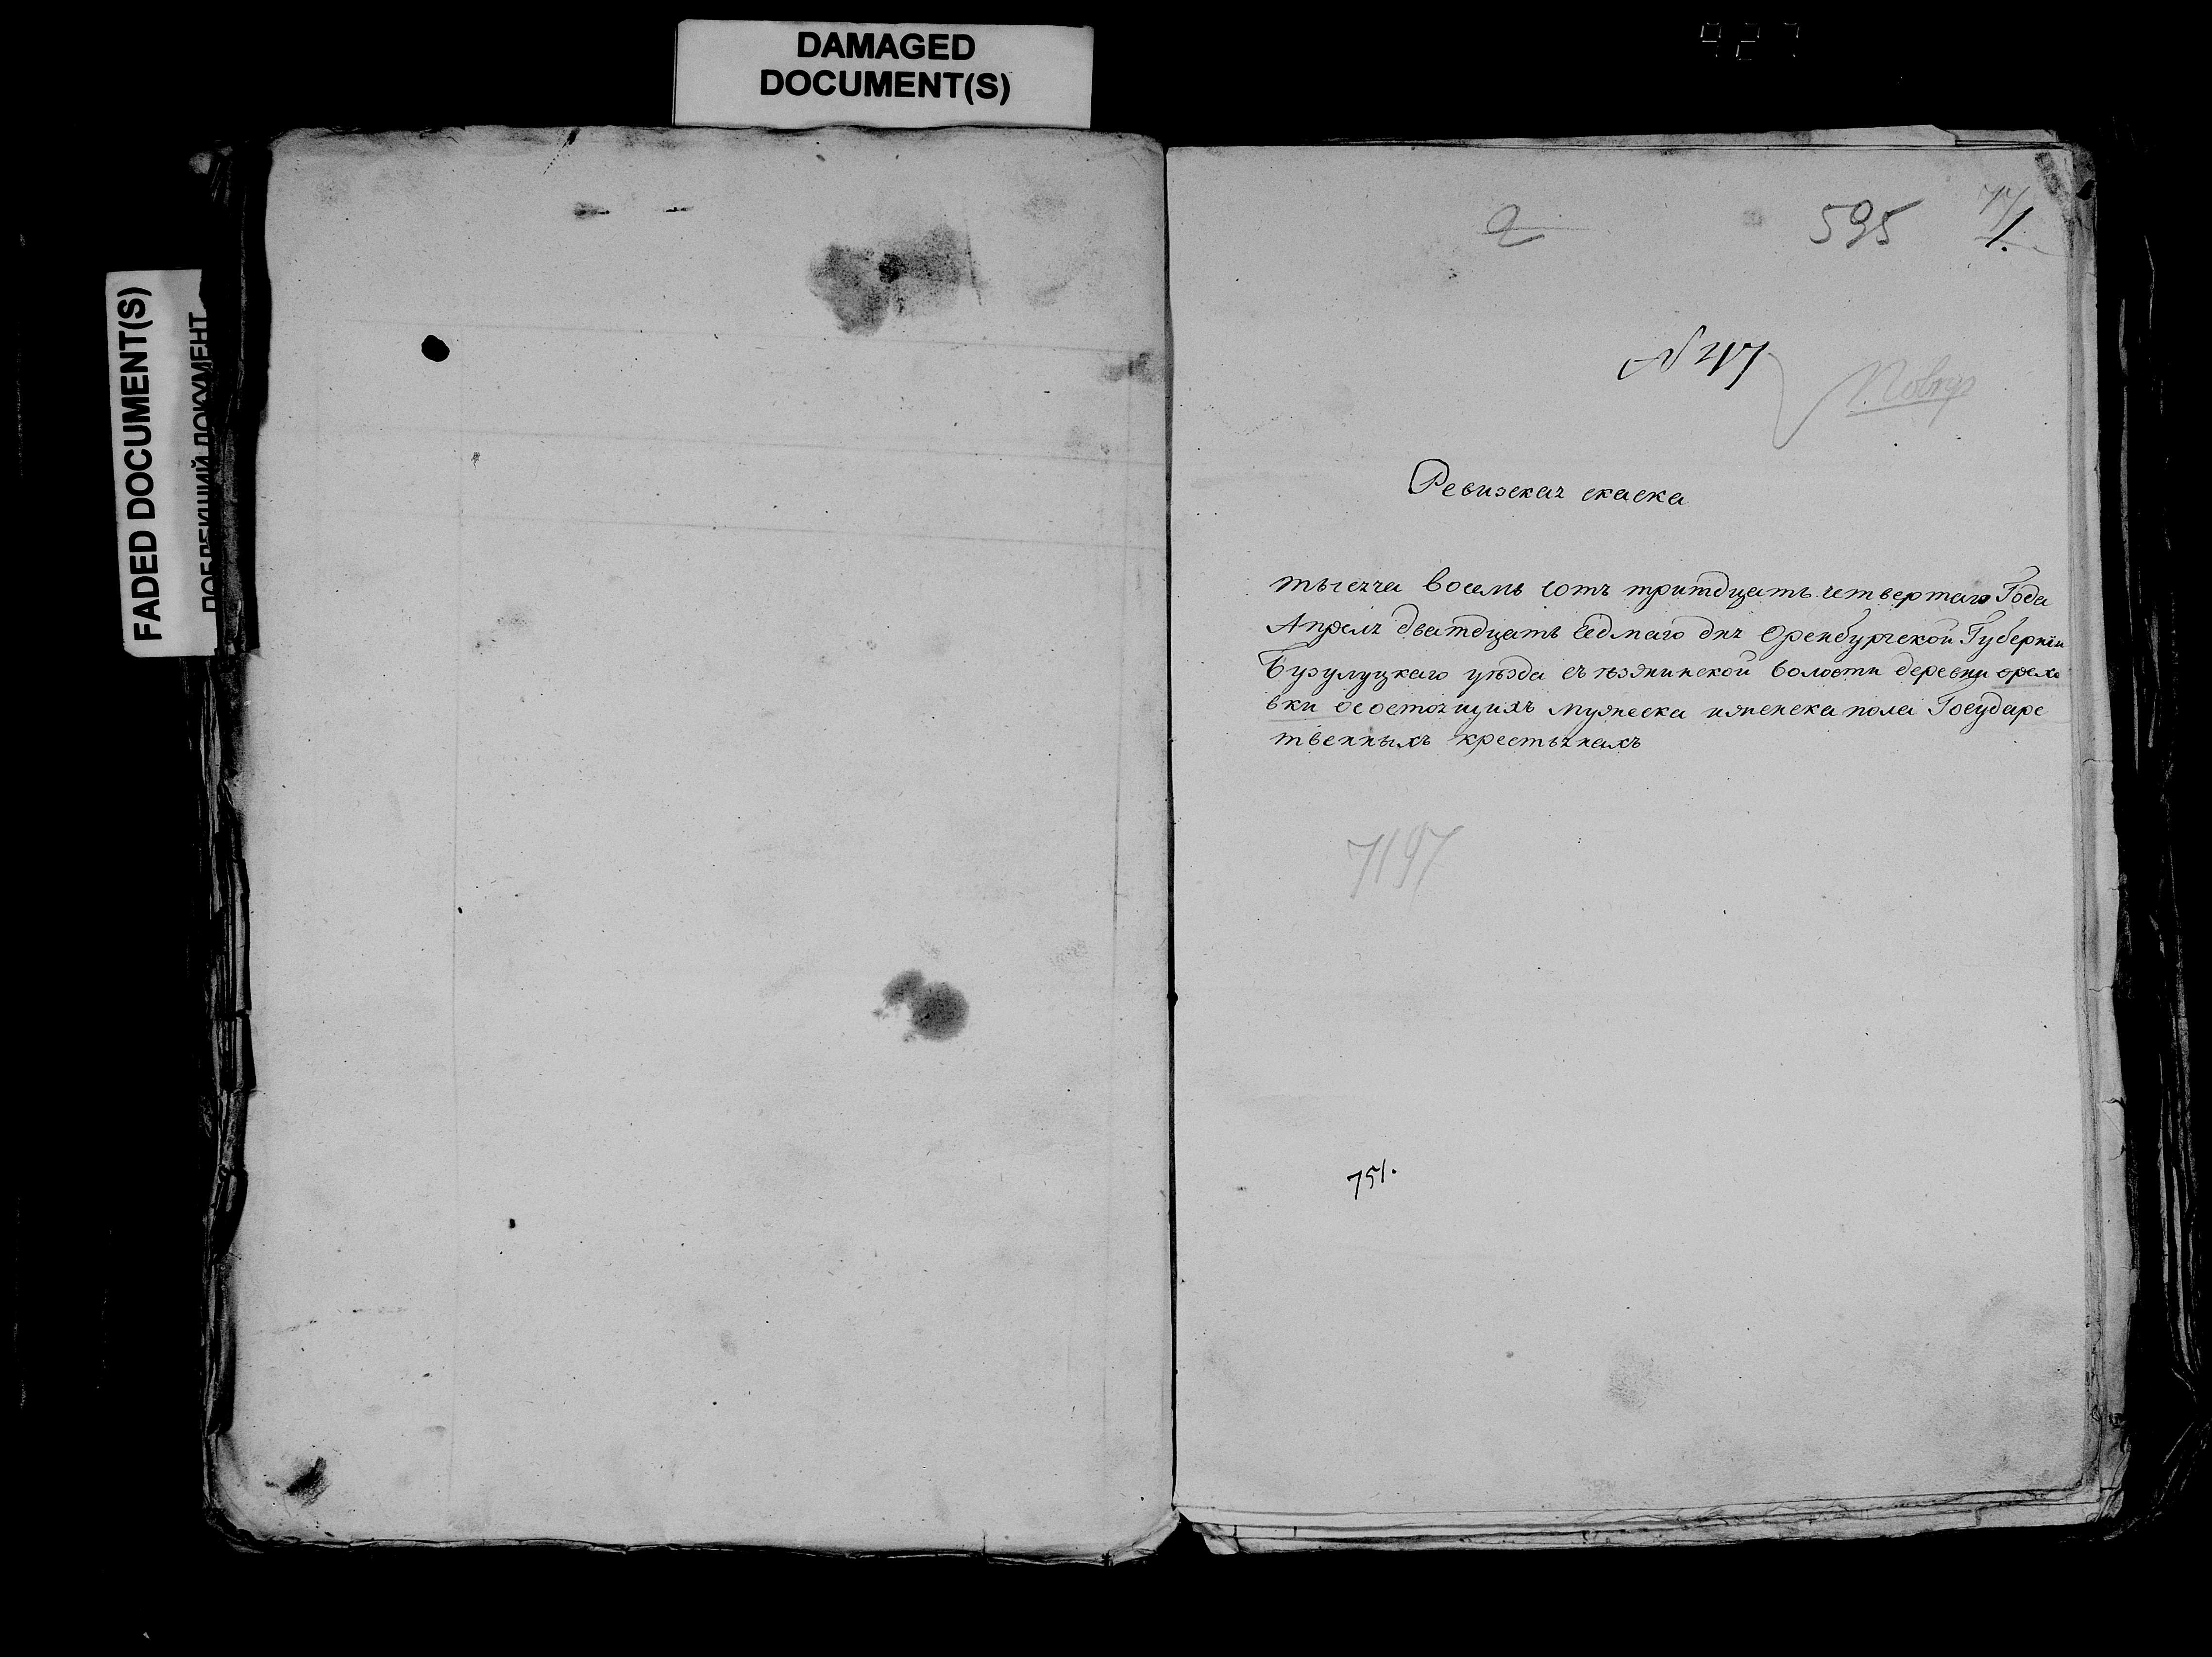 DAMAGED
DOCUMENT(S)
FADED DOCUMENT(S)
2
595
1.
N 47
Ревизская скаска
тысяча восемь сотъ тритдцать четвертаго Года
Апреля дватдцать седмаго дня Оренбургской Губернїи
Бузулуцкаго уѣзда съѣзжинской волости деревни орехо
вки осостоящихъ мужеска иженска пола Государс
твенныхъ крестьянахъ
7197
751.